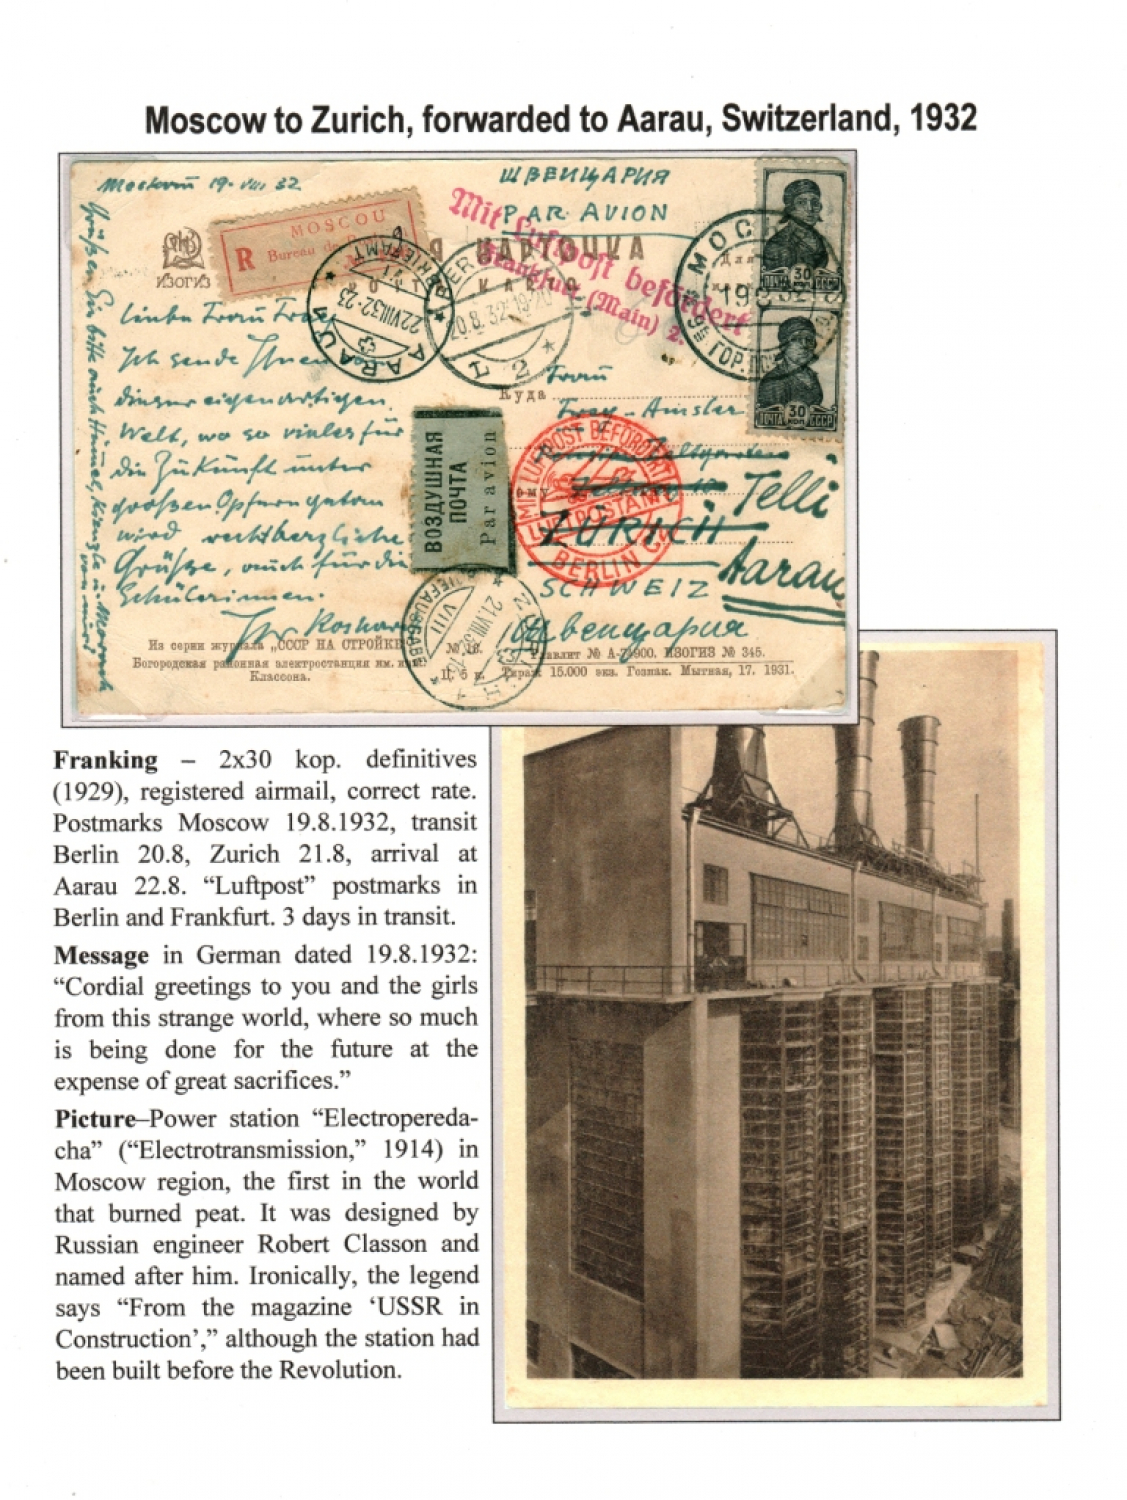 Moscow to Zurich, forwarded to Aarau, Switzerland, 1932
Moskau 19. VIII 32
ШВЕЙЦАРИЯ
PAR AVION
MOSCOU
R Bureau de
Mit Luftpost befördert
Frankfurt (Main) 2.
КАРТОЧКА
ИЗОГИЗ
AARAU
22.VIII.32-23
BERLIN
20.8.32.19-20
L 2
МОСКВА
30 КОП
ПОЧТА СССР
30 КОП
ПОЧТА СССР
Liebe Frau Frey,
Ich sende Ihnen von
dieser eigenartigen
Welt, wo so vieles für
die Zukunft unter
großen Opfern getan
wird recht herzliche
Grüsse, auch für die
Schülerinnen.
Ihr
Куда
Frau
Frey-Amsler
ВОЗДУШНАЯ
ПОЧТА
Par avion
MIT LUFTPOST BEFÖRDERT
LUFTPOSTAMT
BERLIN C2
Telli
ZÜRICH
Aarau
SCHWEIZ
Швейцария
21.VIII.32
Из серии журнала „СССР НА СТРОЙКЕ“
Богородская районная электростанция им. инж.
Классона.
№ 10.
Ц. 5 к.
Главлит № А-74900. ИЗОГИЗ № 345.
Тираж 15.000 экз. Гознак. Мытная, 17. 1931.
Franking – 2x30 kop. definitives
(1929), registered airmail, correct rate.
Postmarks Moscow 19.8.1932, transit
Berlin 20.8, Zurich 21.8, arrival at
Aarau 22.8. “Luftpost” postmarks in
Berlin and Frankfurt. 3 days in transit.
Message in German dated 19.8.1932:
“Cordial greetings to you and the girls
from this strange world, where so much
is being done for the future at the
expense of great sacrifices.”
Picture–Power station “Electropereda-
cha” (“Electrotransmission,” 1914) in
Moscow region, the first in the world
that burned peat. It was designed by
Russian engineer Robert Classon and
named after him. Ironically, the legend
says “From the magazine ‘USSR in
Construction’,” although the station had
been built before the Revolution.